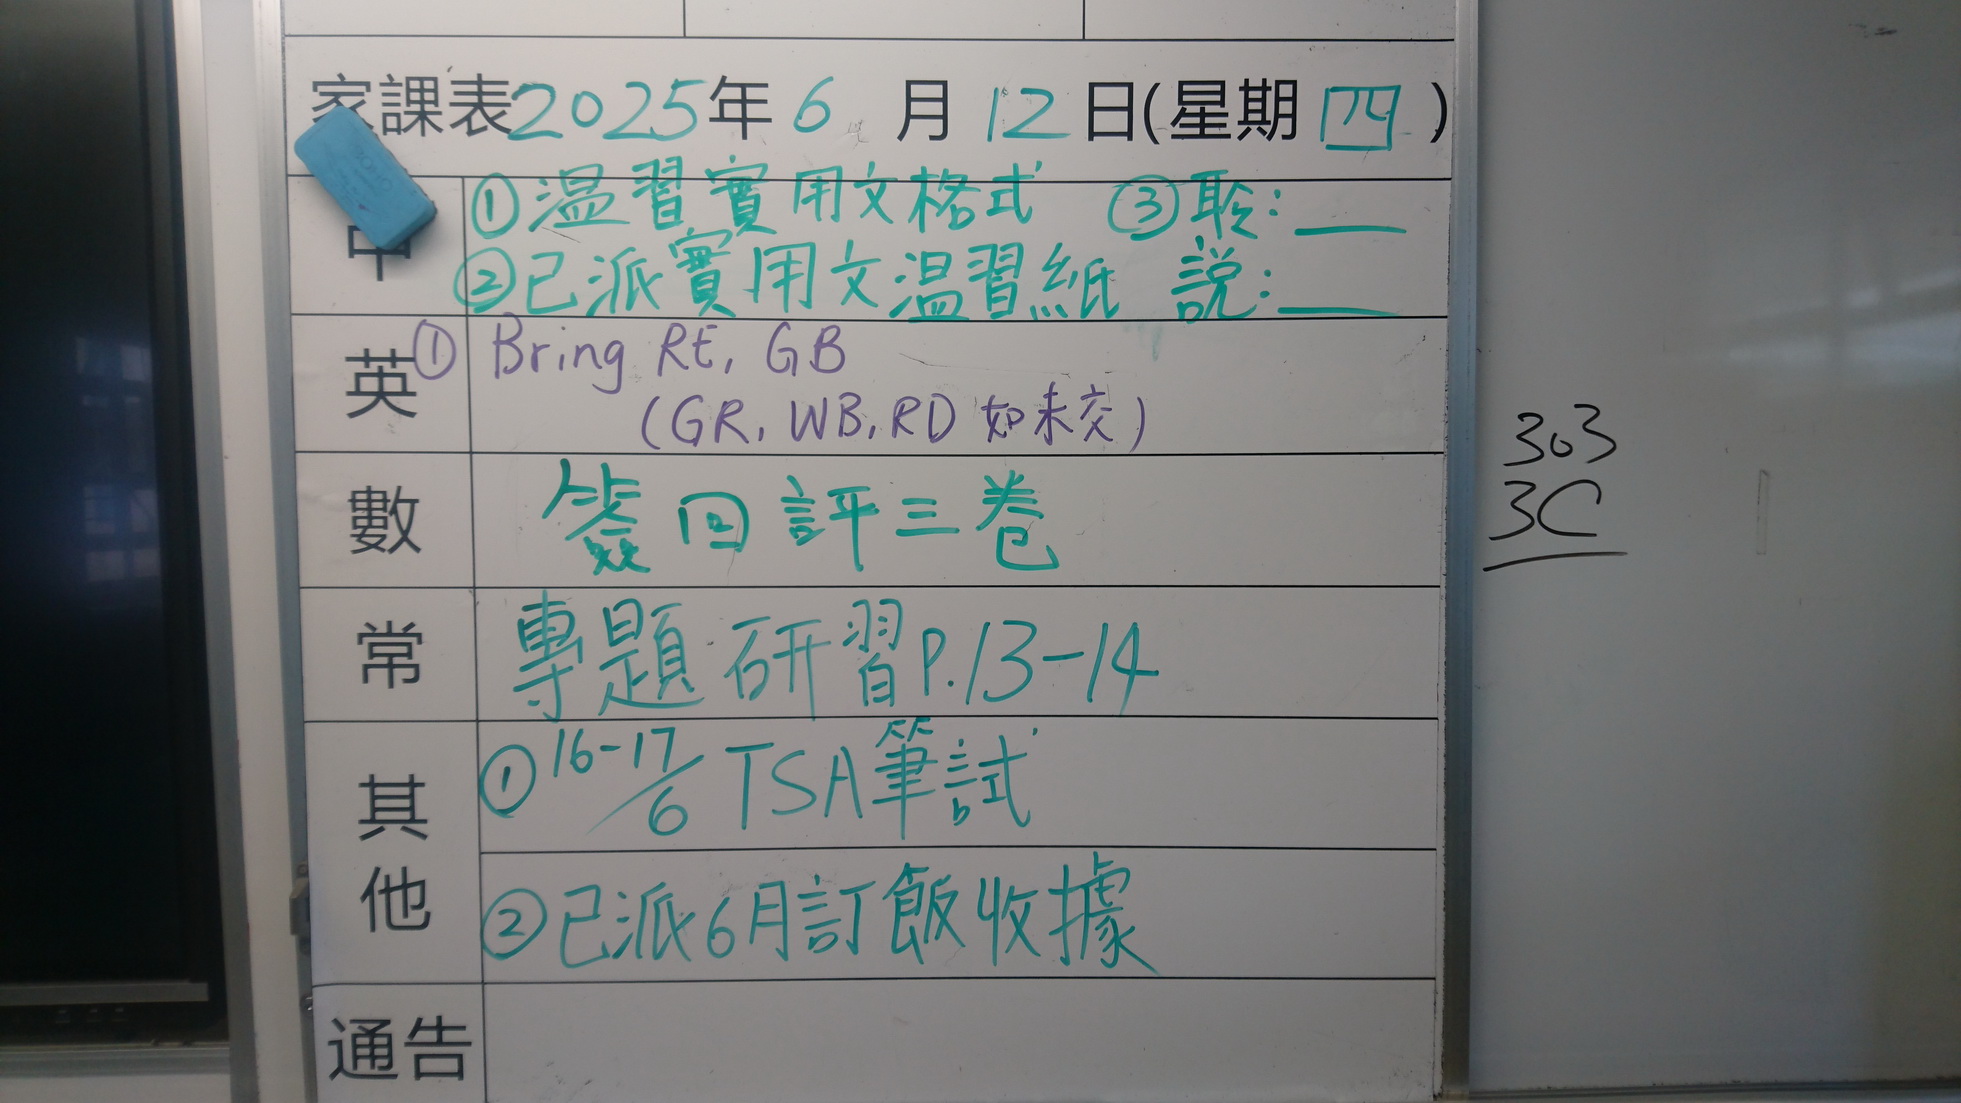 家課表2025年6月12日(星期四)
中
①温習實用文格式 ③聆:__
②已派實用文温習紙 説:__
英
① Bring RE, GB
(GR, WB, RD 如未交)
數
簽回評三卷
常
專題研習P.13-14
其他
①16-17/6 TSA筆試
②已派6月訂飯收據
通告
303
3C